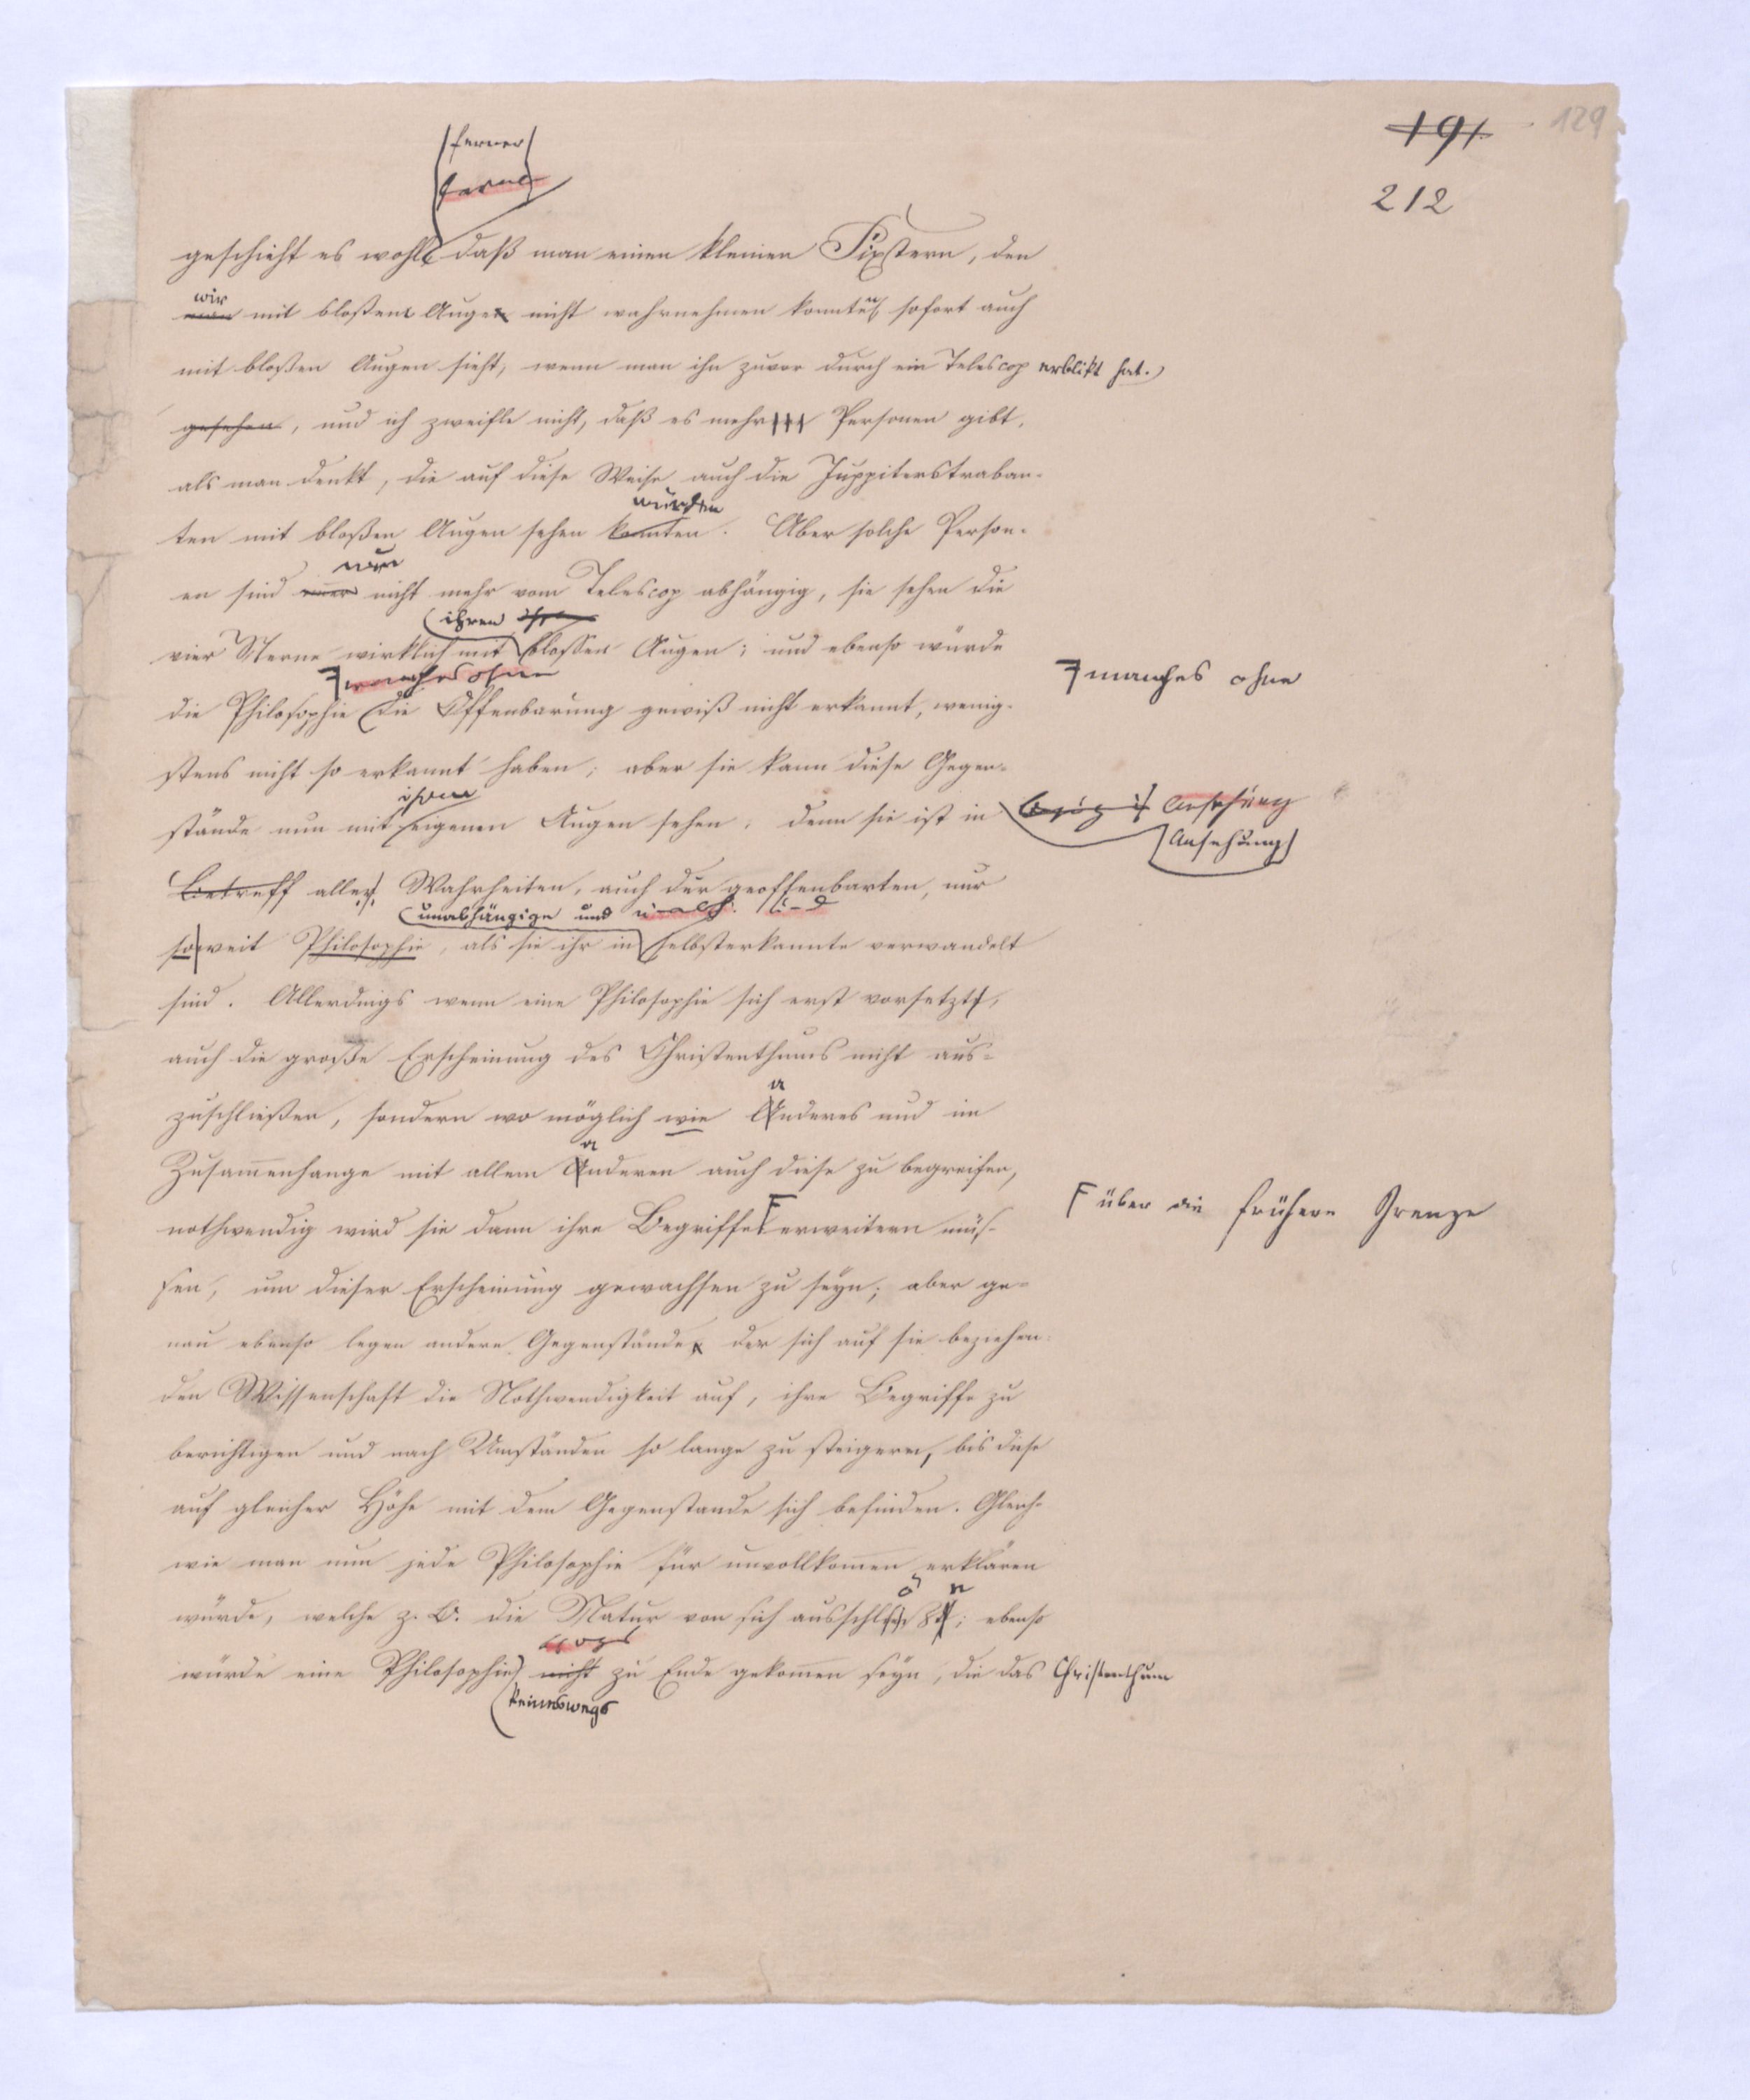 191
129
212
ferner
ferne
geschieht es wohl daß man einen kleinen Fixstern, den
wir
man mit bloßem Auge nicht wahrnehmen konnten sofort auch
mit bloßen Augen sieht, wenn man ihn zuvor durch ein Telescop erblikt hat.
gesehen, und ich zweifle nicht, daß es mehr Personen gibt,
als man denkt, die auf diese Weise auch die Juppiterstraban-
würden
ten mit bloßen Augen sehen konnten. Aber solche Person-
nun
en sind nicht mehr vom Telescop abhängig, sie sehen die
ihren
vier Sterne wirklich mit blossen Augen; und ebenso würde
manches ohne
manches ohne
die Philosophie die Offenbarung gewiß nicht erkannt, wenig-
stens nicht so erkannt haben; aber sie kann diese Gegen-
ihren
stände nun mit eigenen Augen sehen, denn sie ist in Ansehung
Ansehung
Betreff aller Wahrheiten, auch der geoffenbarten, nur
unabhängige und
soweit Philosophie, als sie ihr in selbsterkannte verwandelt
sind. Allerdings wenn eine Philosophie sich erst vorsetzt,
auch die große Erscheinung des Christenthums nicht aus-
a
zuschließen, sondern wo möglich wie Anderes und im
a
Zusam̅enhange mit allem Anderen auch diese zu begreifen,
nothwendig wird sie dann ihre Begriffe erweitern müs-
über die frühere Grenze
sen, um dieser Erscheinung gewachsen zu seyn; aber ge-
nau ebenso legen andere Gegenstände der sich auf sie beziehen-
den Wissenschaft die Nothwendigkeit auf, ihre Begriffe zu
berichtigen und nach Umständen so lange zu steigern, bis diese
auf gleicher Höhe mit dem Gegenstande sich befinden. Gleich-
wie man nun jede Philosophie für unvollkom̅en erklären
ö n
würde, welche z. B. die Natur von sich ausschl; ebenso
würde eine Philosophie nicht zu Ende gekom̅en seyn, die das Christenthum
keineswegs